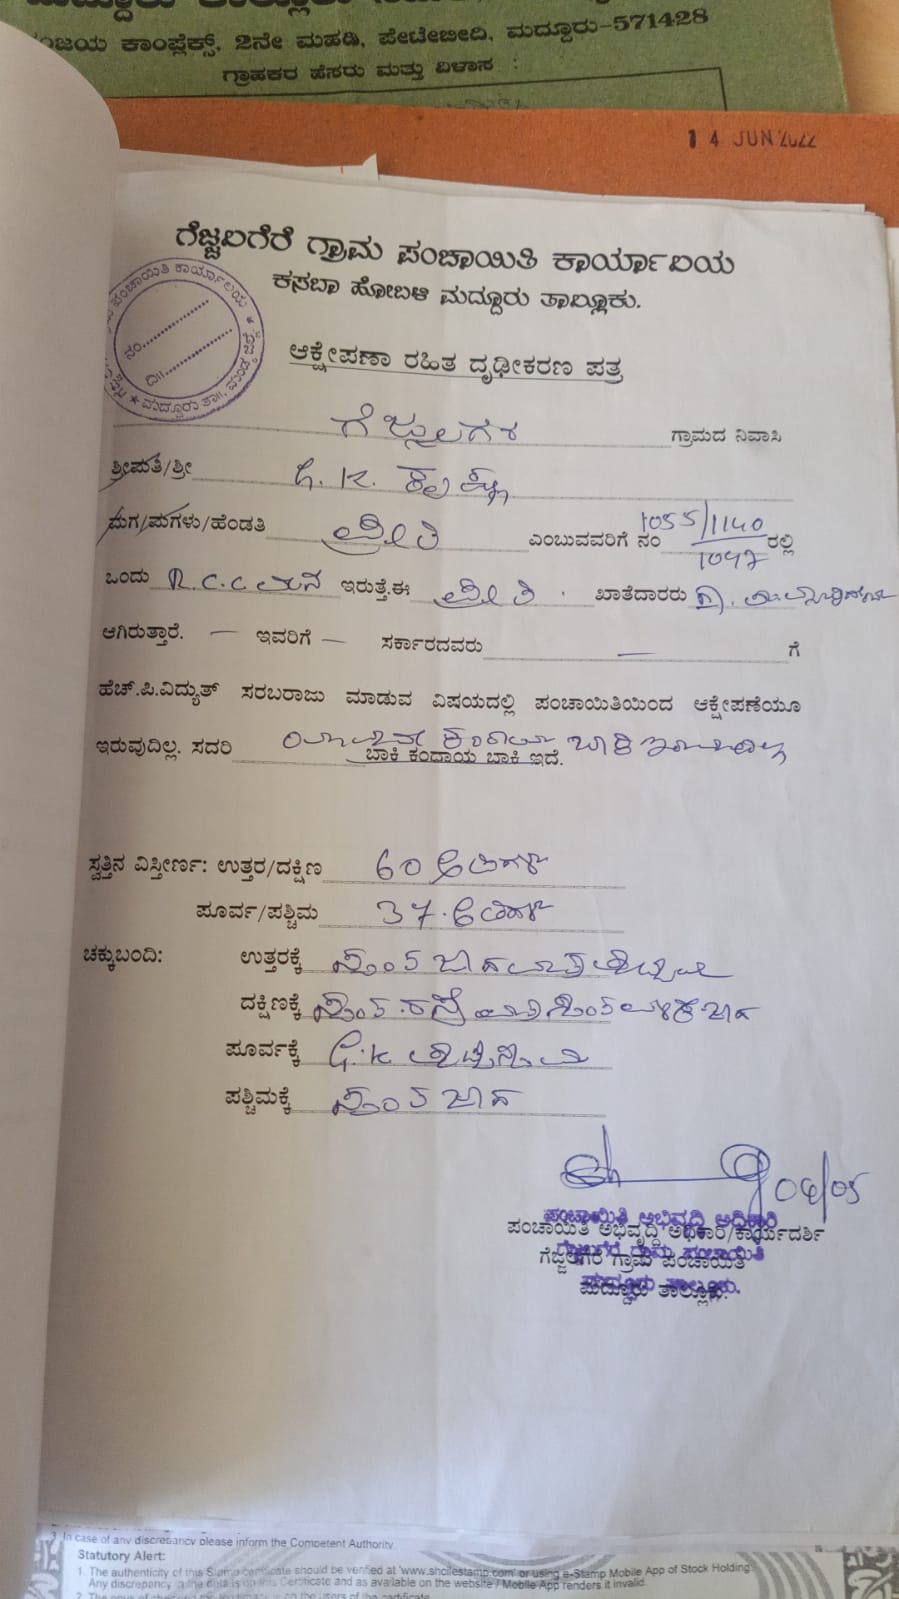 ಕಾಂಪ್ಲೆಕ್ಸ್, 2ನೇ ಮಹಡಿ, ಪೇಟೇಬೀದಿ, ಮದ್ದೂರು-571428
ಗ್ರಾಹಕರ ಹೆಸರು ಮತ್ತು ವಿಳಾಸ :
14 JUN 2022
ಗೆಜ್ಜಲಗೆರೆ ಗ್ರಾಮ ಪಂಚಾಯಿತಿ ಕಾರ್ಯಾಲಯ
ಕಸಬಾ ಹೋಬಳಿ ಮದ್ದೂರು ತಾಲ್ಲೂಕು.
ಪಂಚಾಯಿತಿ ಕಾರ್ಯಾಲಯ
ನಂ.
ದಿ||
ಮದ್ದೂರು ತಾ||, ಮಂಡ್ಯ ಜಿಲ್ಲೆ
ಆಕ್ಷೇಪಣಾ ರಹಿತ ದೃಢೀಕರಣ ಪತ್ರ
ಗೆಜ್ಜಲಗೆರೆ ಗ್ರಾಮದ ನಿವಾಸಿ
ಶ್ರೀಮತಿ/ಶ್ರೀ G. K. ಕೃಷ್ಣ
ಮಗ/ಮಗಳು/ಹೆಂಡತಿ ಪ್ರೀತಿ ಎಂಬುವವರಿಗೆ ನಂ 1055/1140/1047 ರಲ್ಲಿ
ಒಂದು R.C.C ಮನೆ ಇರುತ್ತೆ.ಈ ಪ್ರೀತಿ . ಖಾತೆದಾರರು
ಆಗಿರುತ್ತಾರೆ. — ಇವರಿಗೆ — ಸರ್ಕಾರದವರು — ಗೆ
ಹೆಚ್.ಪಿ.ವಿದ್ಯುತ್ ಸರಬರಾಜು ಮಾಡುವ ವಿಷಯದಲ್ಲಿ ಪಂಚಾಯಿತಿಯಿಂದ ಆಕ್ಷೇಪಣೆಯೂ
ಇರುವುದಿಲ್ಲ. ಸದರಿ ಯಾವುದೇ ಕಂದಾಯ ಬಾಕಿ ಇರುವುದಿಲ್ಲ
ಬಾಕಿ ಕಂದಾಯ ಬಾಕಿ ಇದೆ.
ಸ್ವತ್ತಿನ ವಿಸ್ತೀರ್ಣ: ಉತ್ತರ/ದಕ್ಷಿಣ 60 ಅಡಿಗಳು
ಪೂರ್ವ/ಪಶ್ಚಿಮ 37. ಅಡಿಗಳು
ಚಕ್ಕುಬಂದಿ: ಉತ್ತರಕ್ಕೆ
ದಕ್ಷಿಣಕ್ಕೆ
ಪೂರ್ವಕ್ಕೆ G.K
ಪಶ್ಚಿಮಕ್ಕೆ
04/05
ಪಂಚಾಯಿತಿ ಅಭಿವೃದ್ಧಿ ಅಧಿಕಾರಿ
ಪಂಚಾಯಿತಿ ಅಭಿವೃದ್ಧಿ ಅಧಿಕಾರಿ/ಕಾರ್ಯದರ್ಶಿ
ಗೆಜ್ಜಲಗೆರೆ ಗ್ರಾಮ ಪಂಚಾಯಿತಿ
ಗೆಜ್ಜಲಗೆರೆ ಗ್ರಾಮ ಪಂಚಾಯಿತಿ
ಮದ್ದೂರು ತಾಲ್ಲೂಕು.
ಮದ್ದೂರು ತಾಲ್ಲೂಕು.
3. In case of any discrepancy please inform the Competent Authority
Statutory Alert:
1. The authenticity of this Stamp certificate should be verified at 'www.shcilestamp.com' or using e-Stamp Mobile App of Stock Holding.
Any discrepancy in the details on this Certificate and as available on the website / Mobile App renders it invalid.